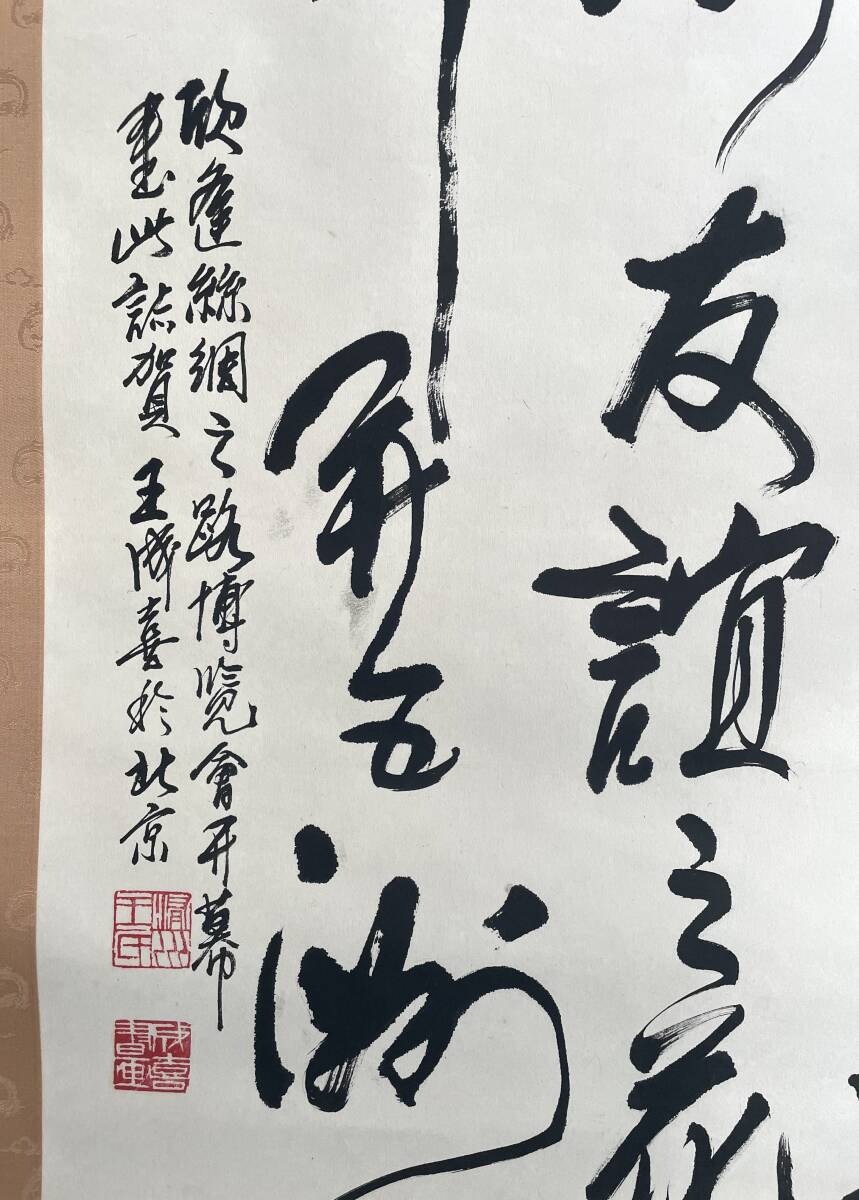 友誼之花
開五洲
欣逢絲綢之路博覽會開幕
書此誌賀 王成喜於北京
滑川王氏
成喜書畫